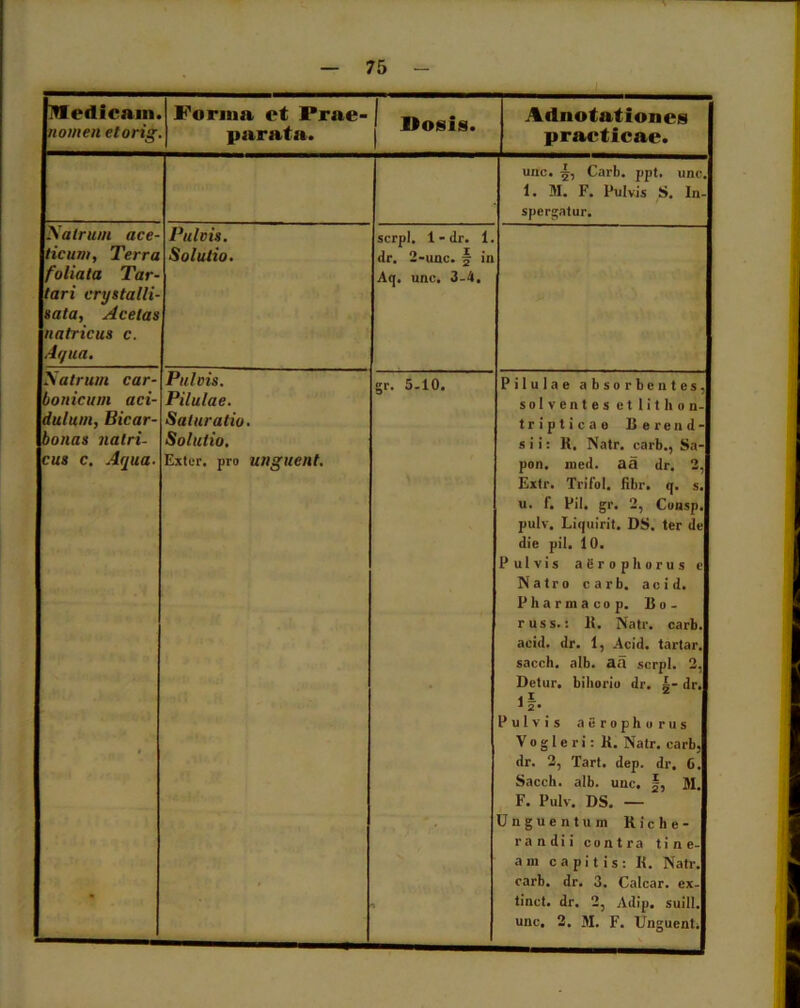 — 75 —
Medicam.
nomen et orig.
Forma et Prae-
parata.
Dosis.
Adnotationes
practicae.
unc. ½, Carb. ppt. unc.
1. M. F. Pulvis S. In-
spergatur.
Natrum ace-
ticum, Terra
foliata Tar-
tari crystalli-
sata, Acetas
natricus c.
Aqua.
Pulvis.
Solutio.
scrpl. 1-dr. 1.
dr. 2-unc. ½ in
Aq. unc. 3-4.
Natrum car-
bonicum aci-
dulum, Bicar-
bonas natri-
cus c. Aqua.
Pulvis.
Pilulae.
Saturatio.
Solutio.
Exter. pro unguent.
gr. 5-10.
Pilulae absorbentes,
solventes et lithon-
tripticae Berend-
sii: R. Natr. carb., Sa-
pon. med. aā dr. 2,
Extr. Trifol. fibr. q. s.
u. f. Pil. gr. 2, Consp.
pulv. Liquirit. DS. ter de
die pil. 10.
Pulvis aërophorus e
Natro carb. acid.
Pharmacop. Bo-
russ.: R. Natr. carb.
acid. dr. 1, Acid. tartar.
sacch. alb. aā scrpl. 2,
Detur. bihorio dr. ½-dr.
1½.
Pulvis aërophorus
Vogleri: R. Natr. carb,
dr. 2, Tart. dep. dr. 6.
Sacch. alb. unc. ½, M.
F. Pulv. DS. —
Unguentum Riche-
randii contra tine-
am capitis: R. Natr.
carb. dr. 3. Calcar. ex-
tinct. dr. 2, Adip. suill.
unc. 2. M. F. Unguent.